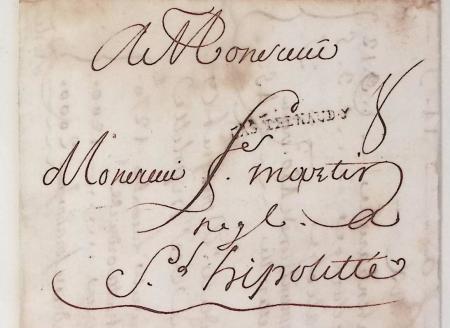 A Monsieur
CASTELNAUD.Y 8
Monsieur martin
negt. a
St. hipolitte